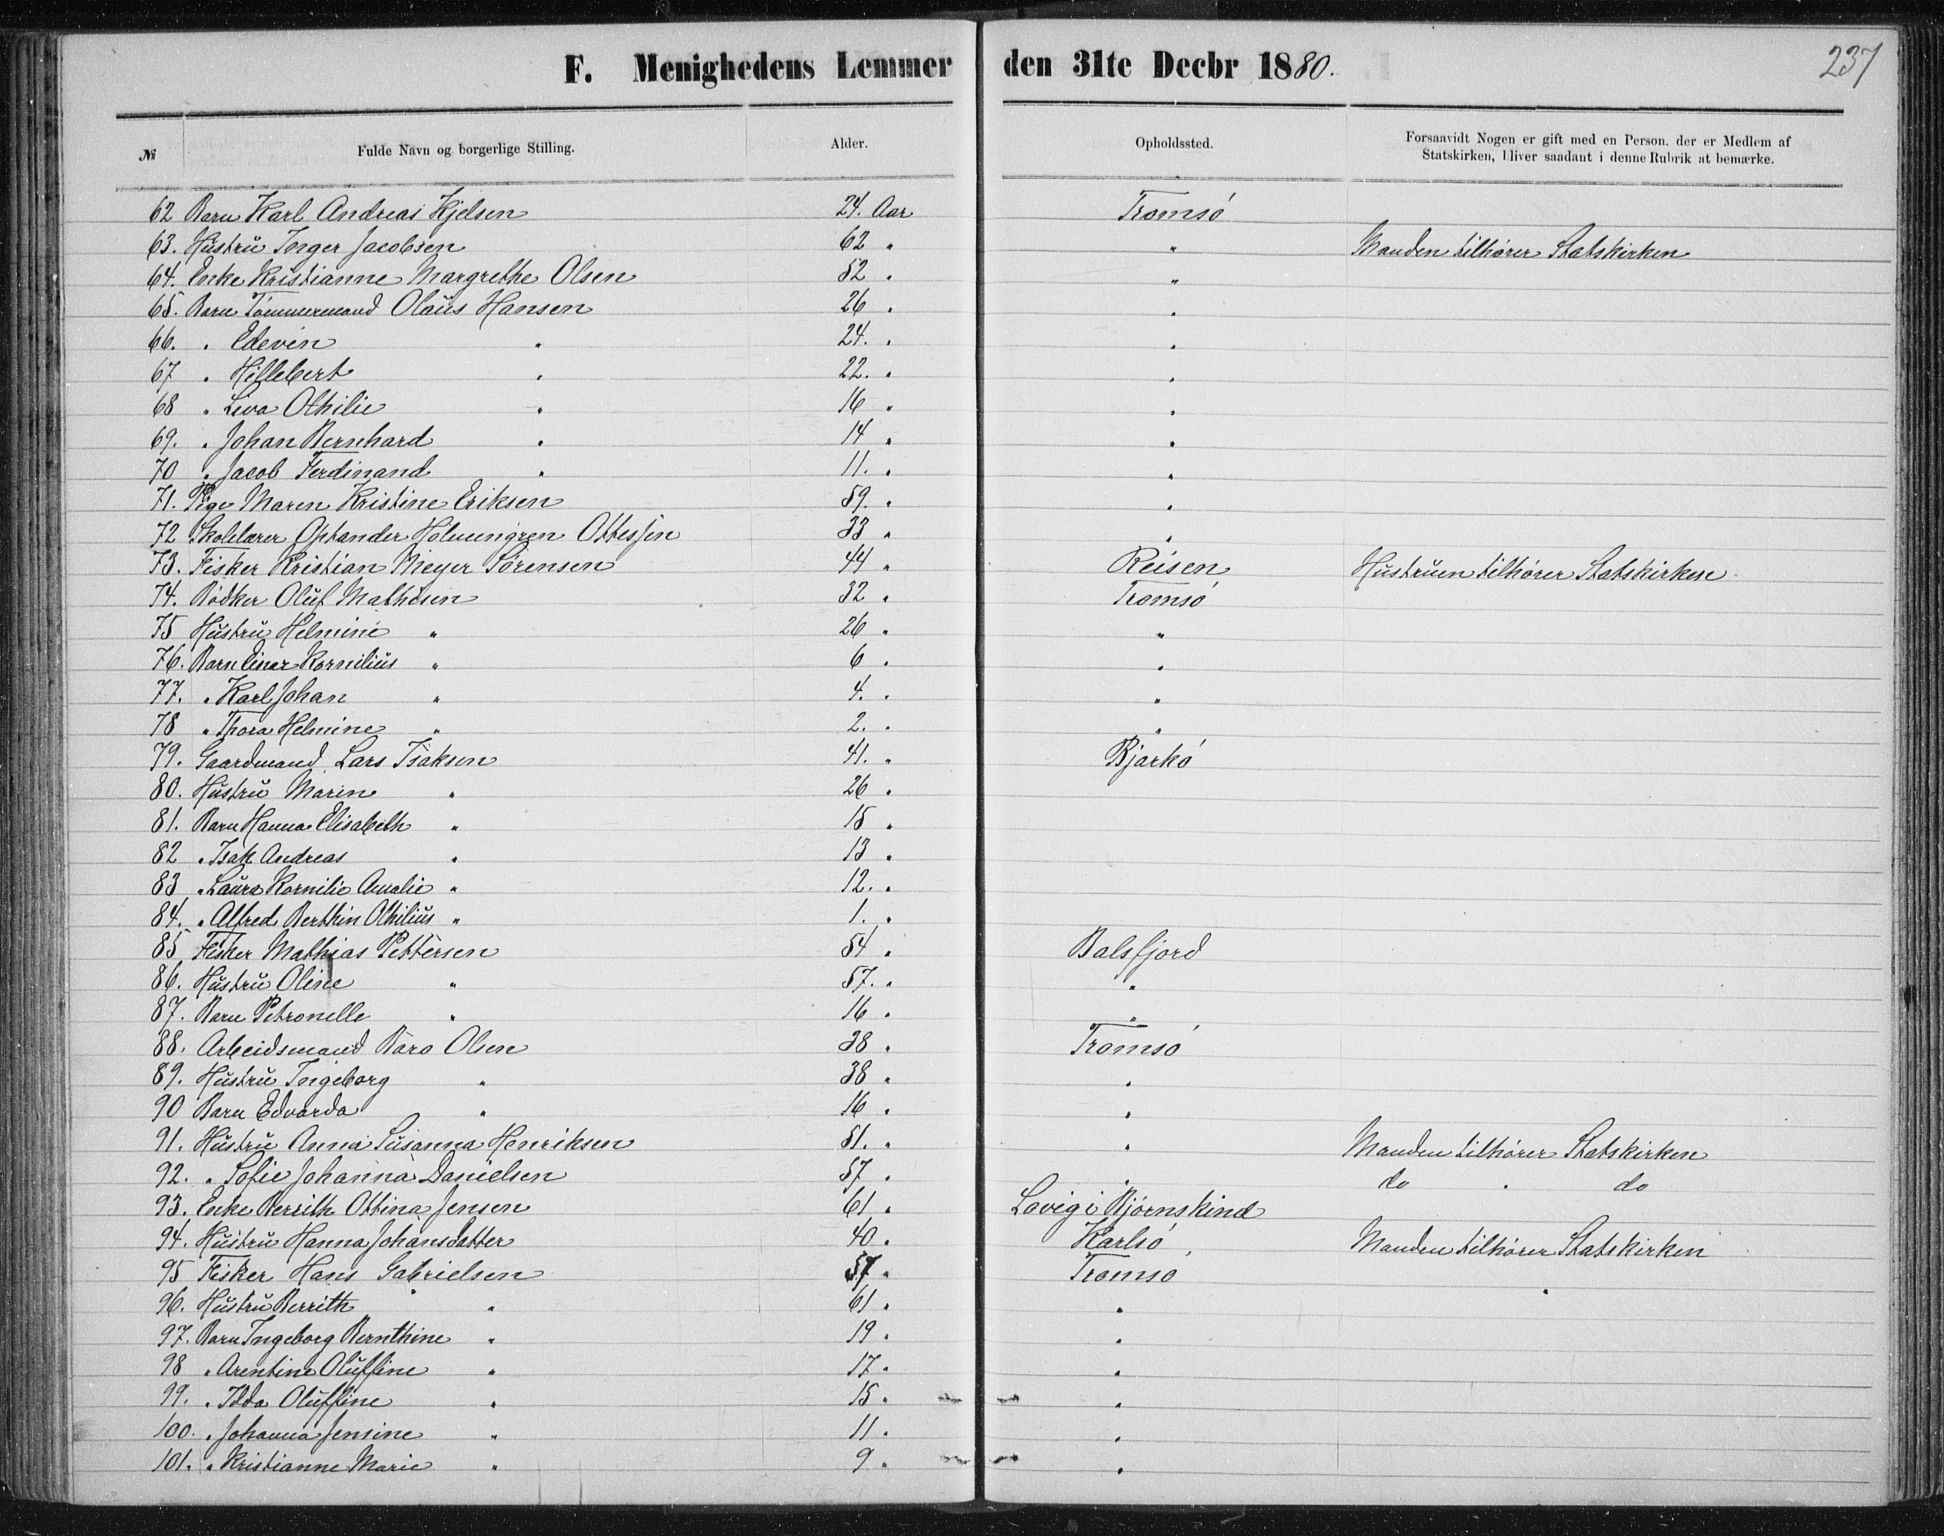 237
F. Menighedens Lemmer den 31te Decbr 1880.
№ Fulde Navn og borgerlige Stilling. Alder. Opholdssted. Forsaavidt Nogen er gift med en Person, der er Medlem af
Statskirken, bliver saadant i denne Rubrik at bemærke.
62 Barn Karl Andreas Kjelsen 24. Aar Tromsø
63. Hustru Inger Jacobsen 62 " " Manden tilhører Statskirken
64. Enke Kristianne Margrethe Olsen 52 " "
65. Barn Tømmermand Olaus Hansen 26 " "
66. " Edevin " 24. " "
67 " Hillebert " 22. " "
68 " Lova Othilie " 16 " "
69. " Johan Bernhard " 14 " "
70 " Jacob Ferdinand " 11. " "
71. Pige Maren Kristine Eriksen 59. " "
72 Skolelærer Optander Holmengren Ottessen 33 " "
73. Fisker Kristian Meyer Sørensen 44 " Reisen Hustruen tilhører Statskirken.
74. Bødker Oluf Mathisen 32 " Tromsø
75 Hustru Helmine " 26 " "
76. Barn Einar Kornilius " 6 " "
77. " Karl Johan " 4. " "
78 " Thora Helmine " 2. " "
79. Gaardmand Lars Isaksen 41. " Bjarkø
80. Hustru Maren " 26 "
81. Barn Hanna Elisabeth " 15 "
82 " Isak Andreas " 13 "
83 " Laura Kornilie Amalie " 12. "
84. " Alfred Berthin Othilius " 1. "
85 Fisker Mathias Pettersen 54 " Balsfjord
86. Hustru Oline " 57. " "
87. Barn Petronelle " 16 " "
88. Arbeidsmand Baro Olsen 38 " Tromsø
89. Hustru Ingeborg " 38 " "
90 Barn Edvarda " 16 " "
91. Hustru Anna Susanna Henriksen 51. " " Manden tilhører Statskirken
92. " Sofie Johanna Danielsen 57 " " do " do
93. Enke Berith Ottina Jensen 61 " Lovig i Bjørnskind
94. Hustru Hanna Johansdatter 40 " Karlsø Manden tilhører Statskirken
95 Fisker Hans Gabrielsen 57 " Tromsø
96. Hustru Berrith " 61 " "
97. Barn Ingeborg Bernthine " 19 " "
98 " Arentine Oluffine " 17 " "
99. " Idda Oluffine " 15 " "
100. " Johanna Jensine " 11 " "
101. " Kristianne Marie " 9 " "